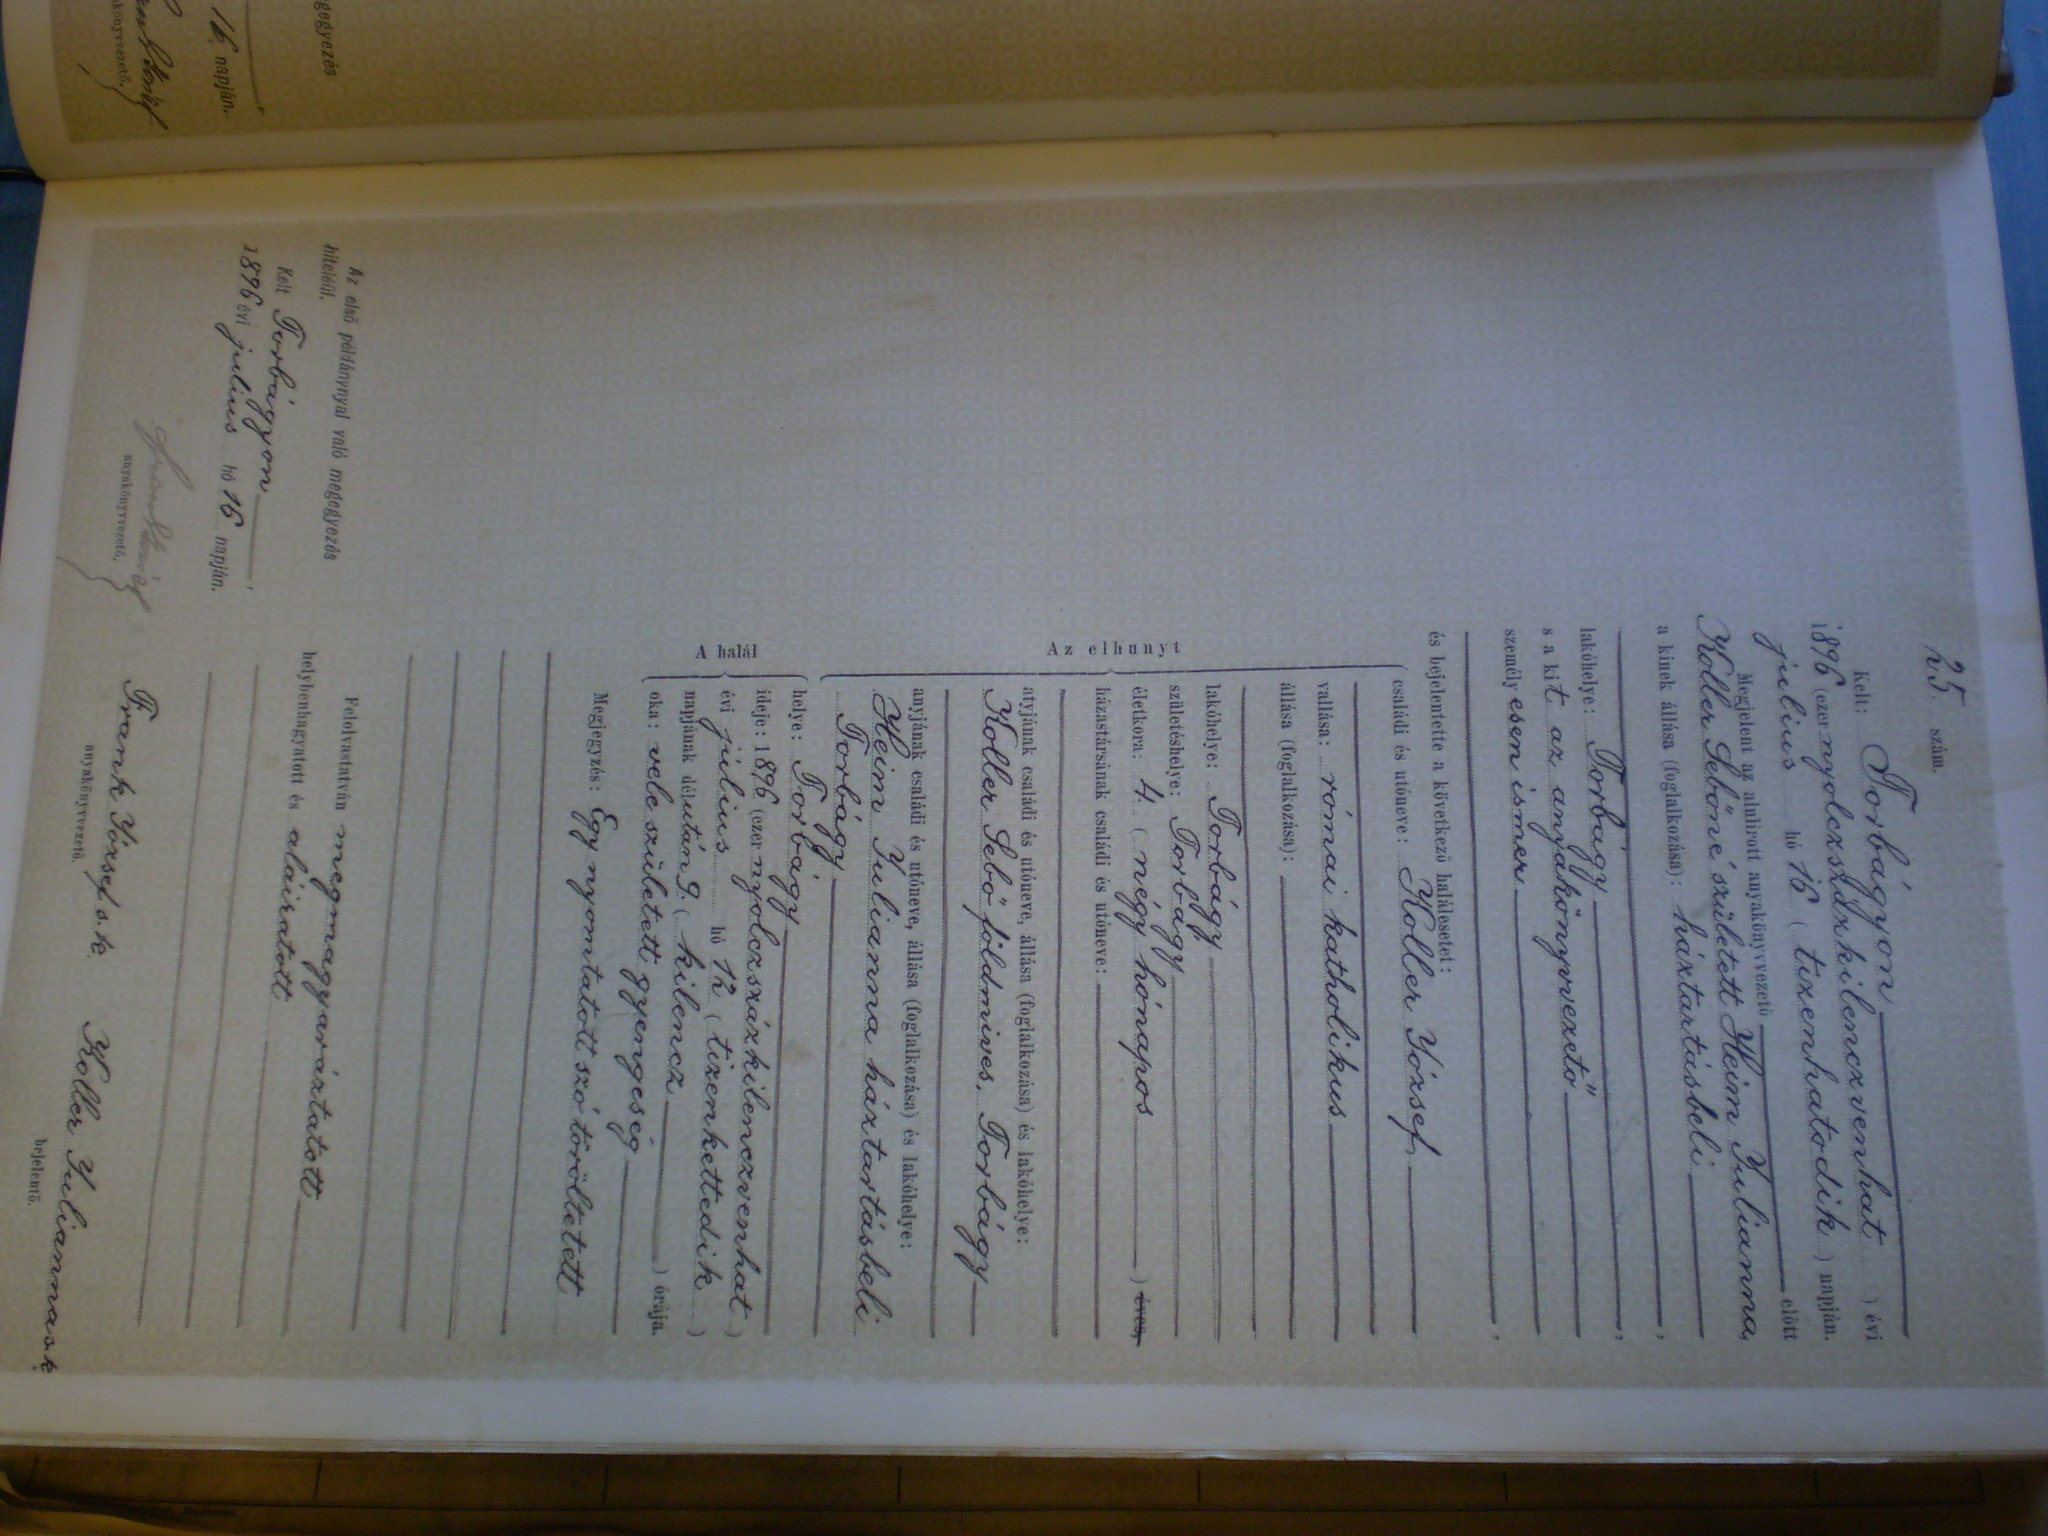 25. szám.
Kelt: Torbágyon
1896 (ezernyolczszázkilenczvenhat) évi
július hó 16 (tizenhatodik) napján.
Megjelent az alulirott anyakönyvvezető előtt
Koller Sebőné született Heim Julianna,
a kinek állása (foglalkozása): háztartásbeli,
lakóhelye: Torbágy,
s a kit az anyakönyvvezető
személyesen ismer,
és bejelentette a következő halálesetet:
Az elhunyt
családi és utóneve: Koller József
vallása: római katholikus
állása (foglalkozása):
lakóhelye: Torbágy
születéshelye: Torbágy
életkora: 4. (négy hónapos) éves,
házastársának családi és utóneve:
atyjának családi és utóneve, állása (foglalkozása) és lakóhelye:
Koller Sebő földmives, Torbágy
anyjának családi és utóneve, állása (foglalkozása) és lakóhelye:
Heim Julianna háztartásbeli
Torbágy
A halál
helye: Torbágy
ideje: 1896 (ezernyolczszázkilenczvenhat)
évi július hó 12 (tizenkettedik)
napjának délután 9. (kilencz) órája.
oka: vele született gyengeség
Megjegyzés: Egy nyomtatott szó töröltetett
Felolvastatván megmagyaráztatott
helybenhagyatott és aláiratott
Frank József s. k.
anyakönyvvezető.
Koller Julianna s. k.
bejelentő.
Az első példánynyal való megegyezés
hiteléül.
Kelt Torbágyon,
1896 évi július hó 16 napján.
anyakönyvvezető.
gegyezés
16 napján.